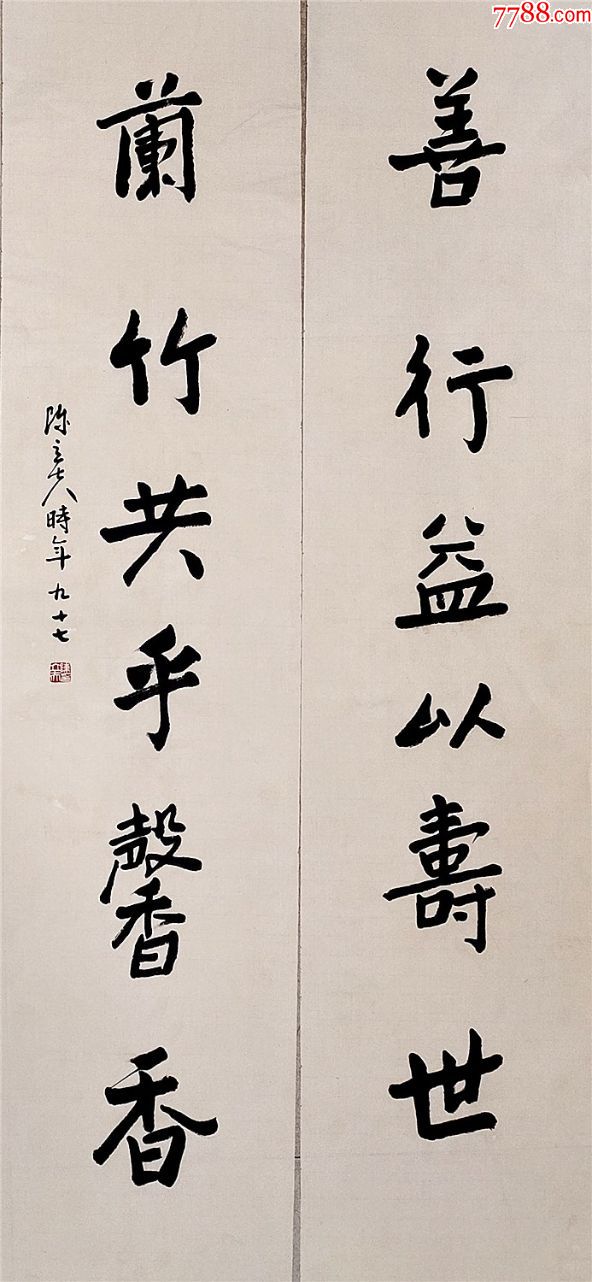 7788.com
善行益以壽世
蘭竹共乎馨香
陳立夫時年九十七